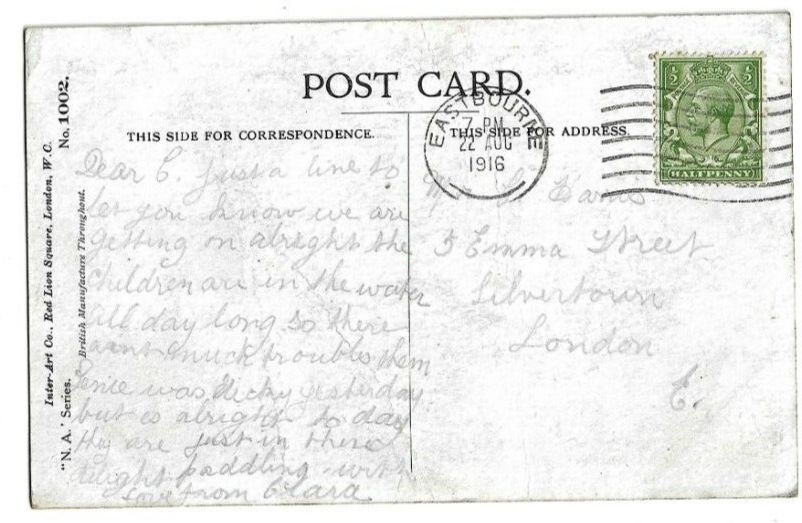 POST CARD.
THIS SIDE FOR CORRESPONDENCE.
THIS SIDE FOR ADDRESS.
EASTBOURNE
7 PM
22 AUG
1916
½ ½
HALFPENNY
No. 1002.
Inter-Art Co., Red Lion Square, London, W.C.
British Manufacture Throughout.
"N. A.' Series.
Dear C. Just a line to
let you know we are
getting on alright the
children are in the water
all day long so there
aint much trouble them
was dicky yesterday
but is alright to day
they are just in there
delight paddling with
love from Clara
5 Emma Street
Silvertown
London
E.